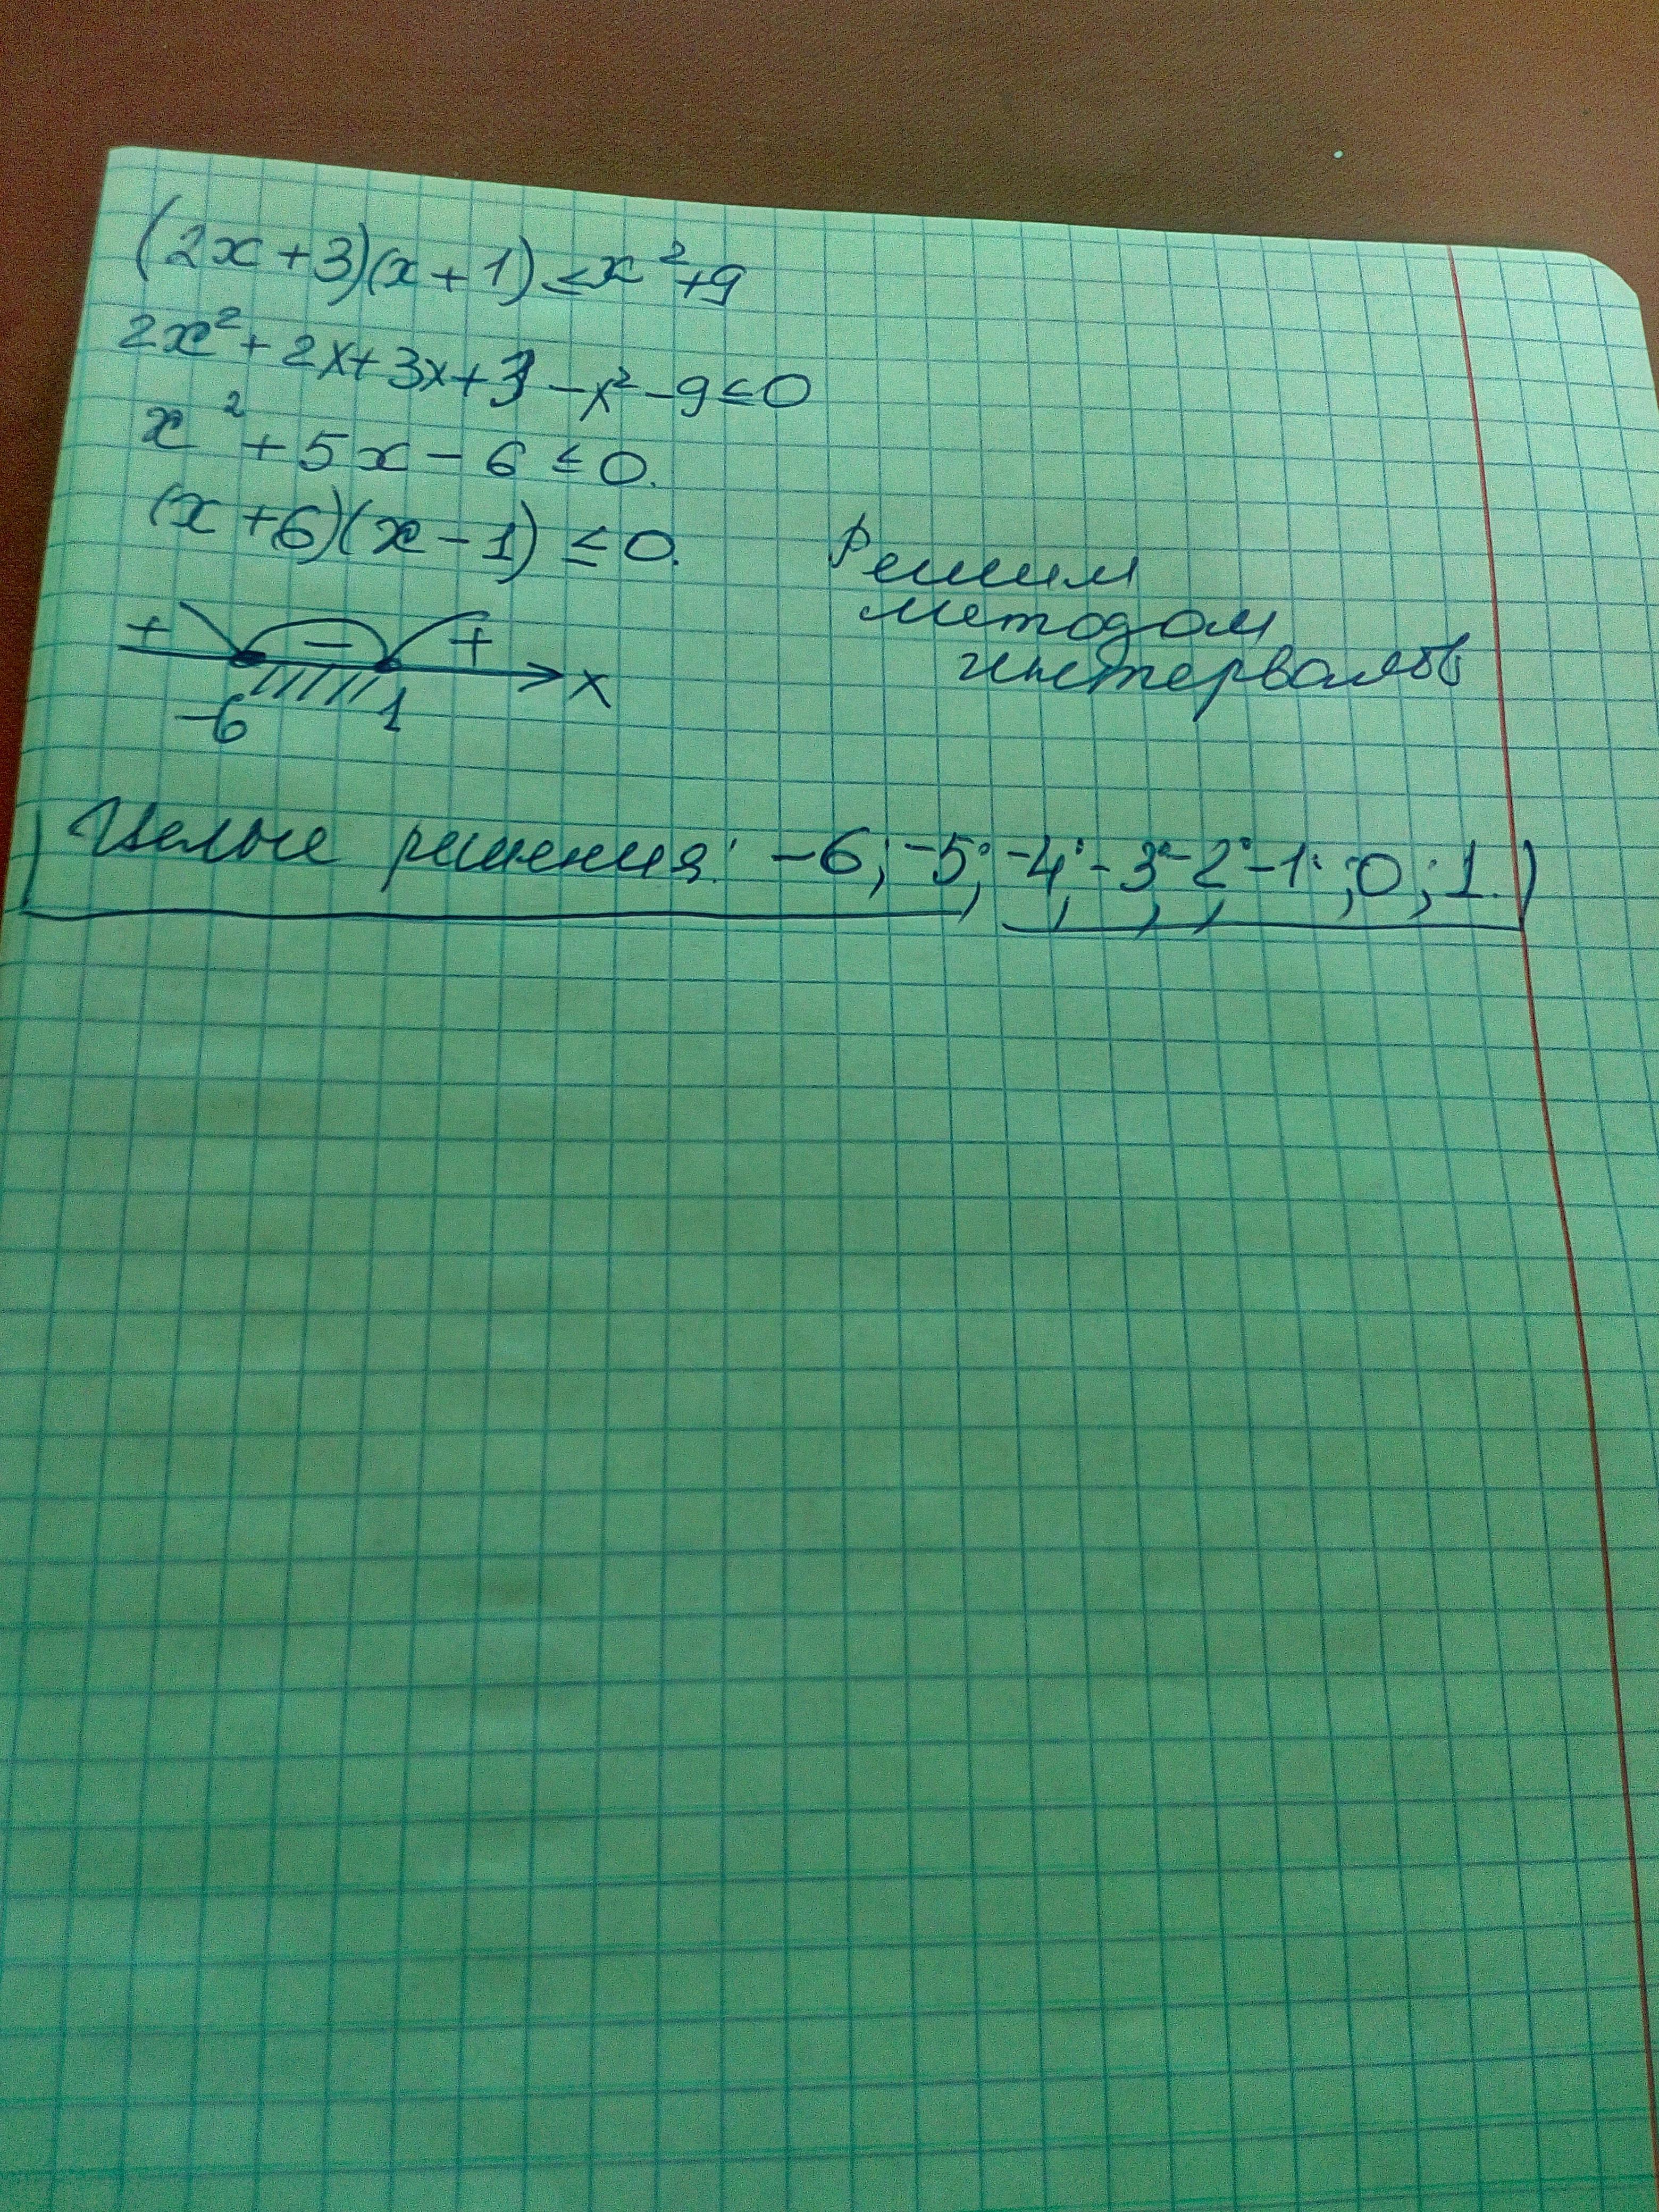 (2x+3)(x+1)≤x²+9
2x²+2x+3x+3-x²-9≤0
x²+5x-6≤0.
(x+6)(x-1)≤0.
Решим
методом
интервалов
+ - + x
-6 1
Целые решения: -6; -5; -4; -3; -2; -1; 0; 1.